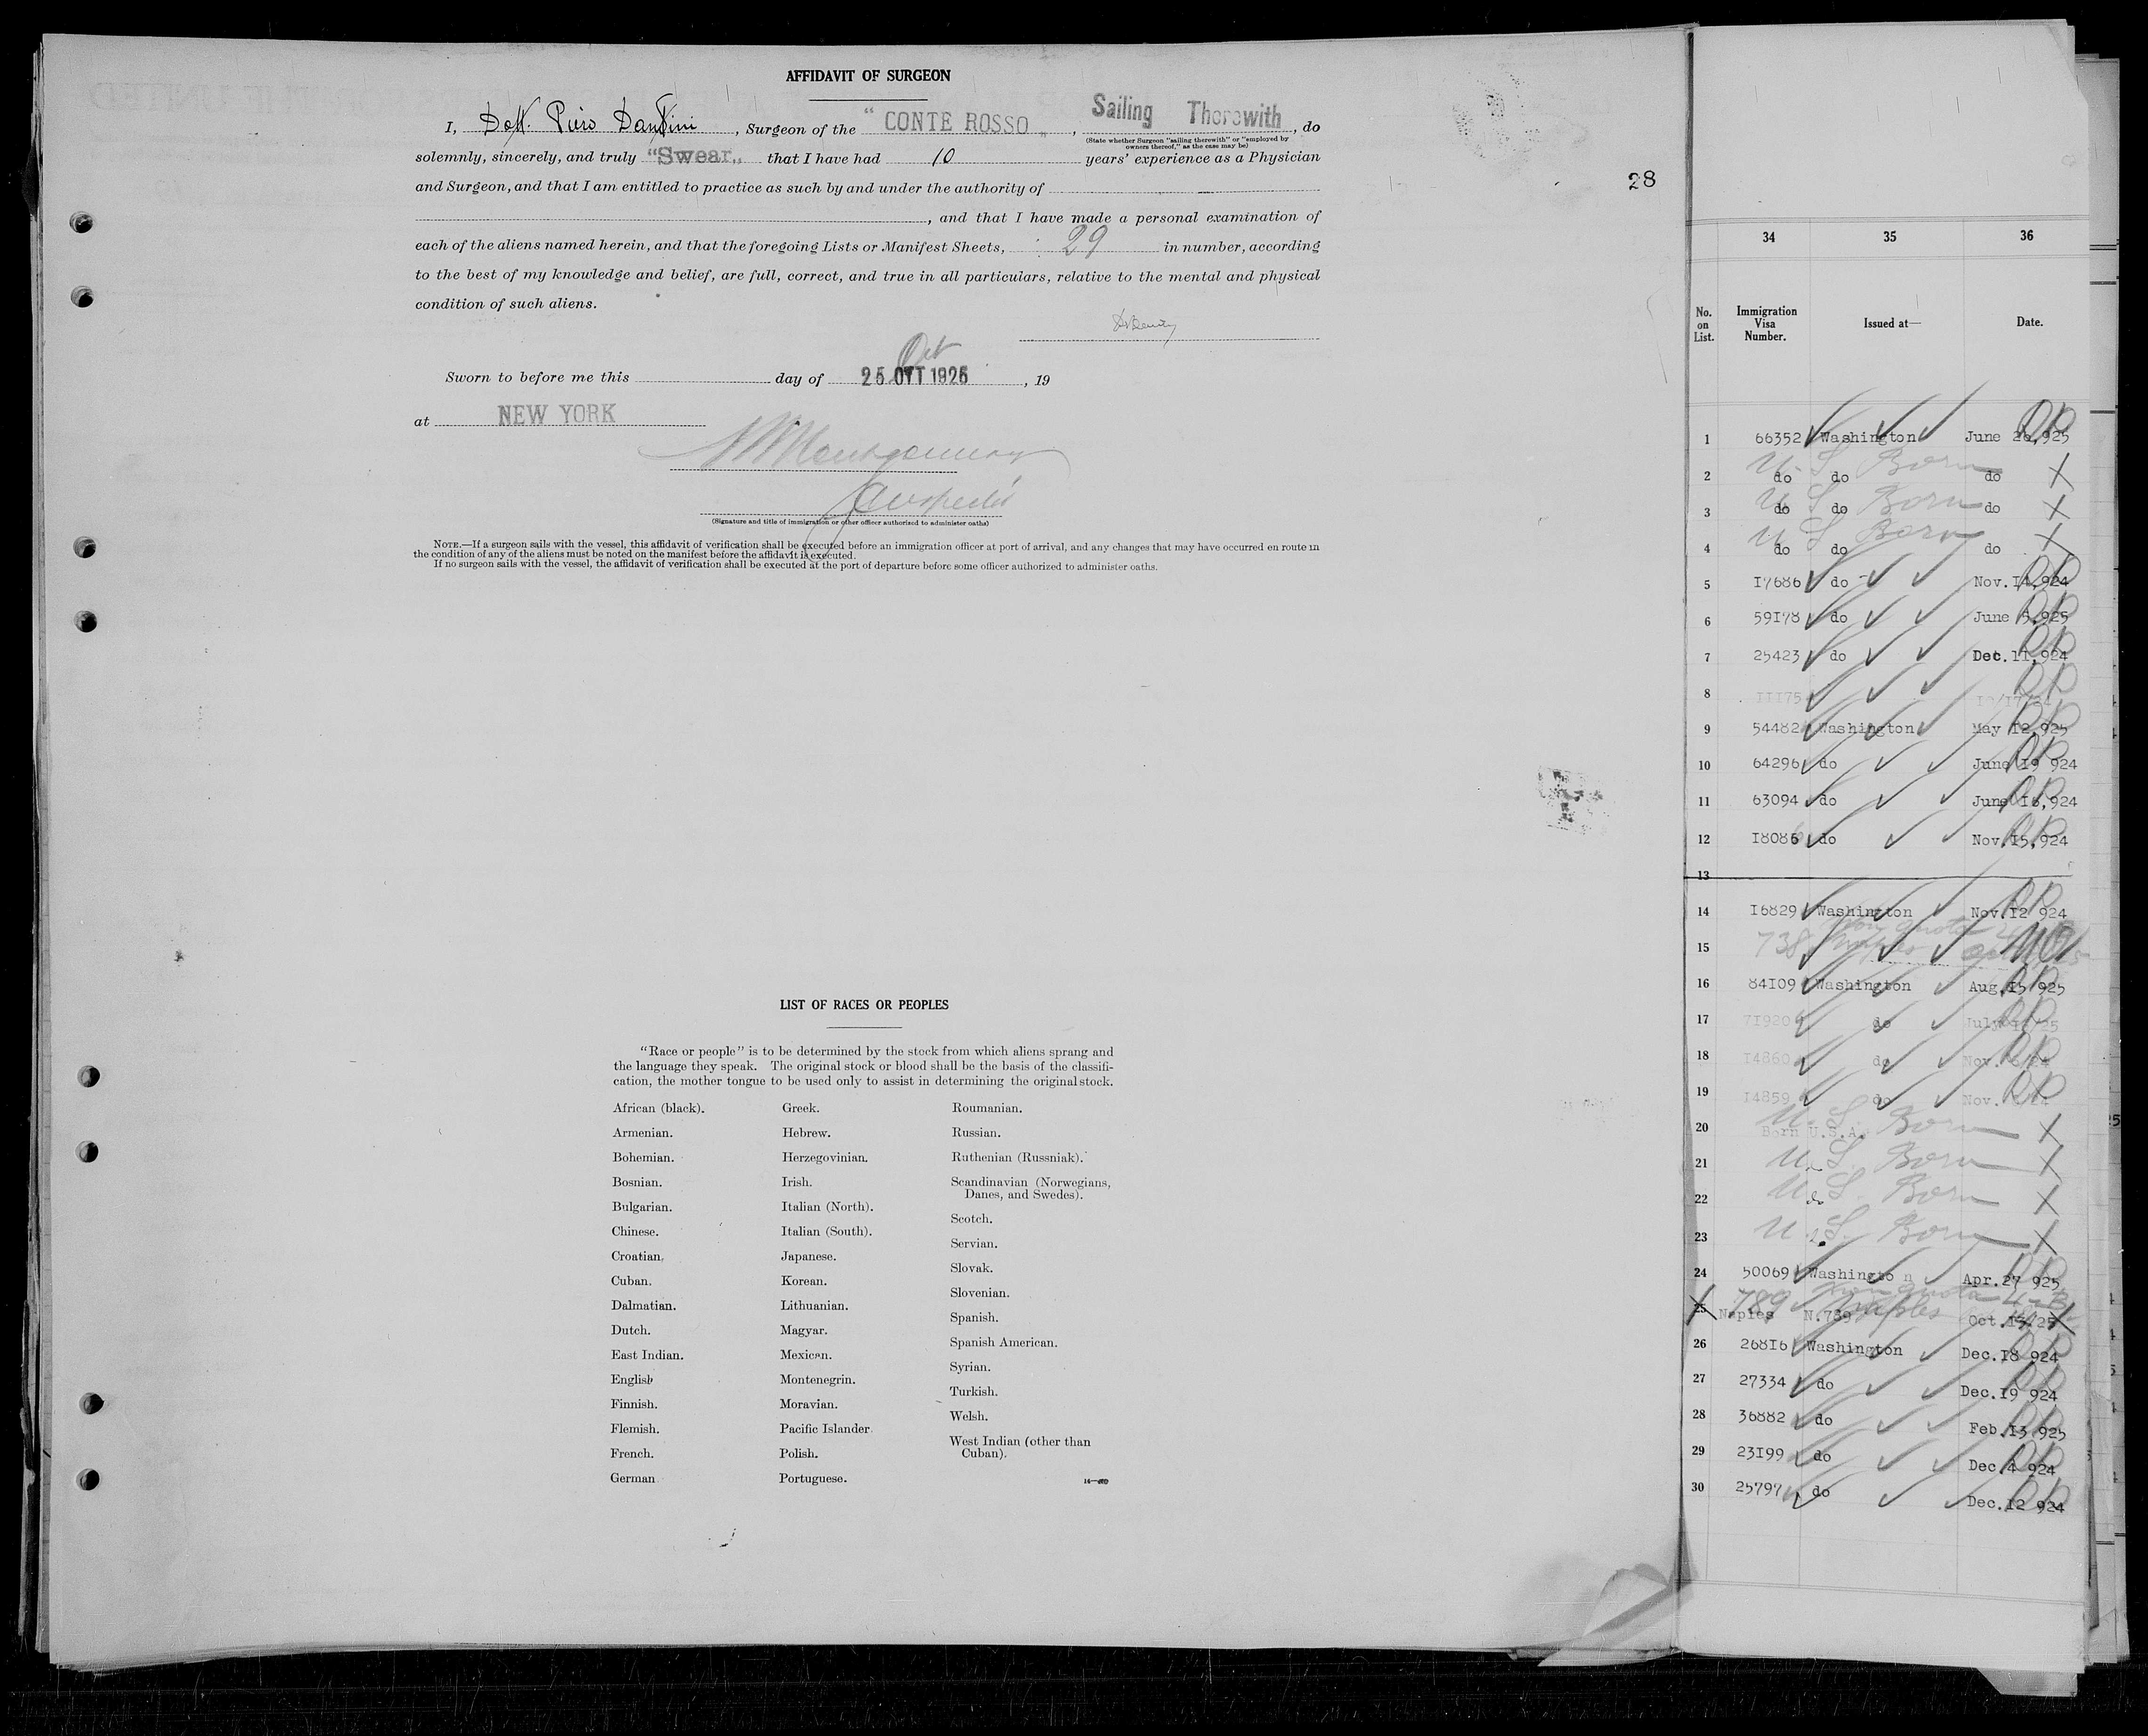 AFFIDAVIT OF SURGEON
I, Dott. Piero , Surgeon of the "CONTE ROSSO", Sailing Therewith, do
(State whether Surgeon "sailing therewith" or "employed by
owners thereof," as the case may be)
solemnly, sincerely, and truly "Swear" that I have had 10 years' experience as a Physician
and Surgeon, and that I am entitled to practice as such by and under the authority of
, and that I have made a personal examination of
each of the aliens named herein, and that the foregoing Lists or Manifest Sheets, 29 in number, according
to the best of my knowledge and belief, are full, correct, and true in all particulars, relative to the mental and physical
condition of such aliens.
Oct
Sworn to before me this day of 25 OTT 1925, 19
at NEW YORK
Montgomery
Inspector
(Signature and title of immigration or other officer authorized to administer oaths)
NOTE.—If a surgeon sails with the vessel, this affidavit of verification shall be executed before an immigration officer at port of arrival, and any changes that may have occurred en route in
the condition of any of the aliens must be noted on the manifest before the affidavit is executed.
If no surgeon sails with the vessel, the affidavit of verification shall be executed at the port of departure before some officer authorized to administer oaths.
LIST OF RACES OR PEOPLES
"Race or people" is to be determined by the stock from which aliens sprang and
the language they speak. The original stock or blood shall be the basis of the classifi-
cation, the mother tongue to be used only to assist in determining the original stock.
African (black).
Armenian.
Bohemian.
Bosnian.
Bulgarian.
Chinese.
Croatian.
Cuban.
Dalmatian.
Dutch.
East Indian.
English
Finnish.
Flemish.
French.
German
Greek.
Hebrew.
Herzegovinian.
Irish.
Italian (North).
Italian (South).
Japanese.
Korean.
Lithuanian.
Magyar.
Mexican.
Montenegrin.
Moravian.
Pacific Islander
Polish.
Portuguese.
Roumanian.
Russian.
Ruthenian (Russniak).
Scandinavian (Norwegians,
Danes, and Swedes).
Scotch.
Servian.
Slovak.
Slovenian.
Spanish.
Spanish American.
Syrian.
Turkish.
Welsh.
West Indian (other than
Cuban).
28
34 35 36
No. on List. Immigration Visa Number. Issued at— Date.
1 66352 Washington June 26,925
2 do do do U.S. Born X
3 do do do U.S. Born X
4 do do do U.S. Born X
5 I7686 do Nov.I4,924
6 59I78 do June 5,925
7 25423 do Dec.11,924
8 III75
9 54482 Washington May I2,925
10 64296 do June I9 924
11 63094 do June I6,924
12 I8086 do Nov.I5,924
13
14 I6829 Washington Nov.I2 924
15 738 Naples Non quota
16 84I09 Washington Aug.I5 925
17 7I920 do July
18 I4860 do Nov.
19 I4859 do Nov.
20 Born U.S.A. U.S. Born X
21 U.S. Born X
22 do U.S. Born X
23 U.S. Born X
24 50069 Washington Apr.27 925
25 Naples N.789 789 Naples Non quota Oct.
26 268I6 Washington Dec.I8 924
27 27334 do Dec.I9 924
28 36882 do Feb.I3 925
29 23I99 do Dec.4 924
30 25797 do Dec.I2 924